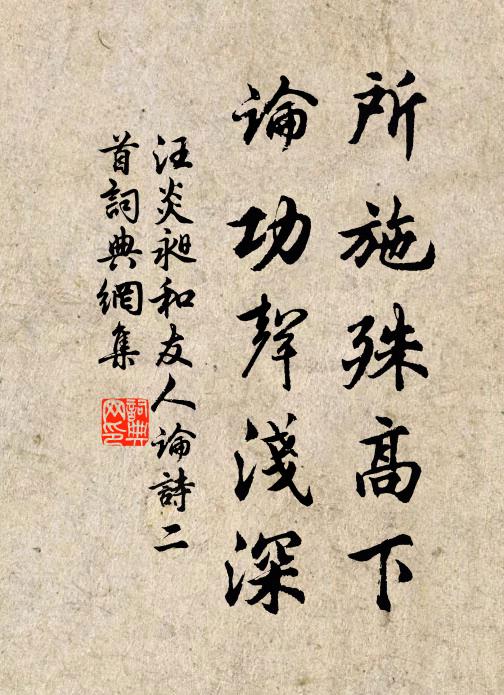 所施殊高下
論功聲淺深
汪炎昶和友人論詩二
首詞典網集
詞典
网印